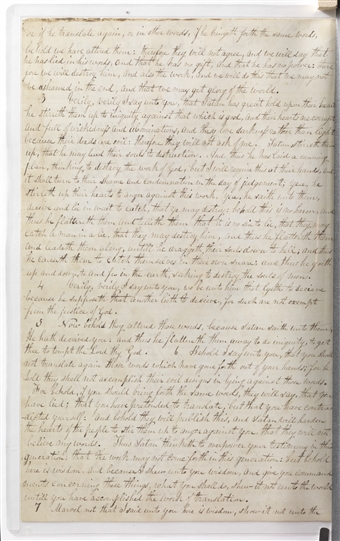 or if he translate again, or in other words, if he bringeth forth the same words,
behold we have altered them: therefore they will not agree, and we will say that
he has lied in his words, and that he has no gift, and that he has no power: there
you we will destroy him, and also the work. And we will do this that we may not
be ashamed in the end, and that we may get glory of the world.
3 Verily, verily I say unto you, that Satan has great hold upon their hearts
he stirreth them up to iniquity against that which is good, and their hearts are corrupt
and full of wickedness and abominations, and they love darkness rather than light
because their deeds are evil: therefore they will not ask of me. Satan stirreth them
up, that he may lead their souls to destruction. And thus he has laid a cunning
plan, thinking to destroy the work of God; but I will require this at their hands, and
it shall turn to their shame and condemnation in the day of judgement; yea, he
stirreth up their hearts to anger against this work; yea, he saith unto them,
deceive and lie in wait to catch, that ye may destroy: behold this is no harm, and
thus he flattereth them and telleth them that it is no sin to lie, that they may
catch a man in a lie, that they may destroy him, and thus he flattereth them
and leadeth them along, until he draggeth their souls down to hell; and thus
he causeth them to catch themselves in their own snare: and thus he goeth
up and down, to and fro in the earth, seeking to destroy the souls of men.
4 Verily, verily I say unto you, wo be unto him that lieth to deceive
because he supposeth that another lieth to deceive, for such are not exempt
from the justice of God.
5 Now behold they altered those words, because Satan saith unto them,
He hath deceived you: and thus he flattereth them away to do iniquity, to get
thee to tempt the Lord thy God. 6 Behold I say unto you, that you shall
not translate again those words which have gone forth out of your hands; for be
hold they shall not accomplish their evil designs in lying against those words.
For, behold, if you should bring forth the same words, they will say that you
have lied; that you have pretended to translate, but that you have contra
dicted yourself: and behold they will publish this, and Satan will harden
the hearts of the people to stir them up to anger against you, that they will not
believe my words. Thus Satan thinketh to overpower your testimony in this
generation, that the work may not come forth in this generation: but behold
here is wisdom; and because I shew unto you wisdom, and give you command
ments concerning these things, what you shall do, shew it not unto the world
until you have accomplished the work of translation.
7 Marvel not that I said unto you here is wisdom, shew it not unto the